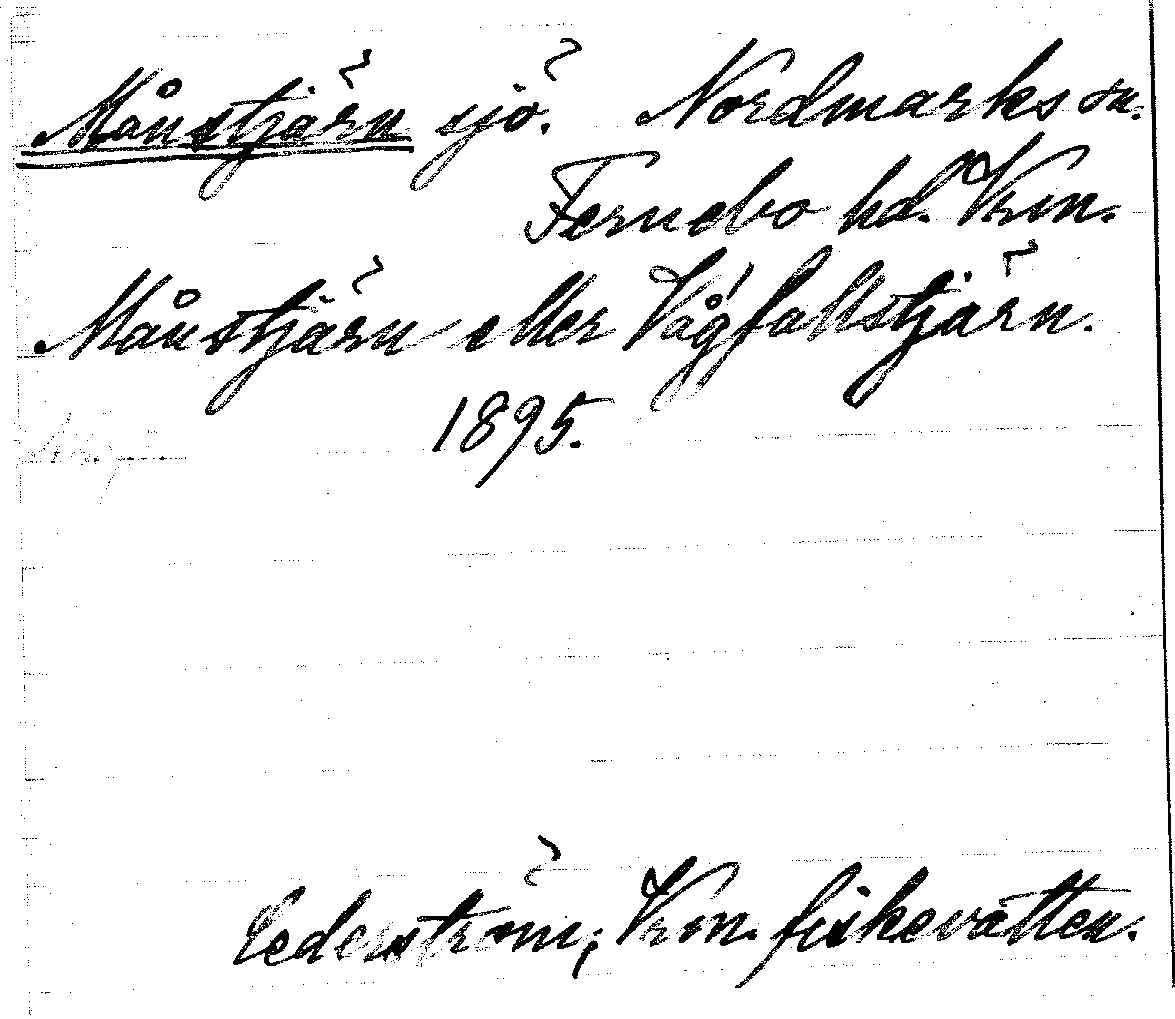 Månstjärn sjö. Nordmarks sn.
Fernebo hd. Vrm.
Månstjärn eller Vågfallstjärn.
1895.
Cederström, Vrm. fiskevatten.